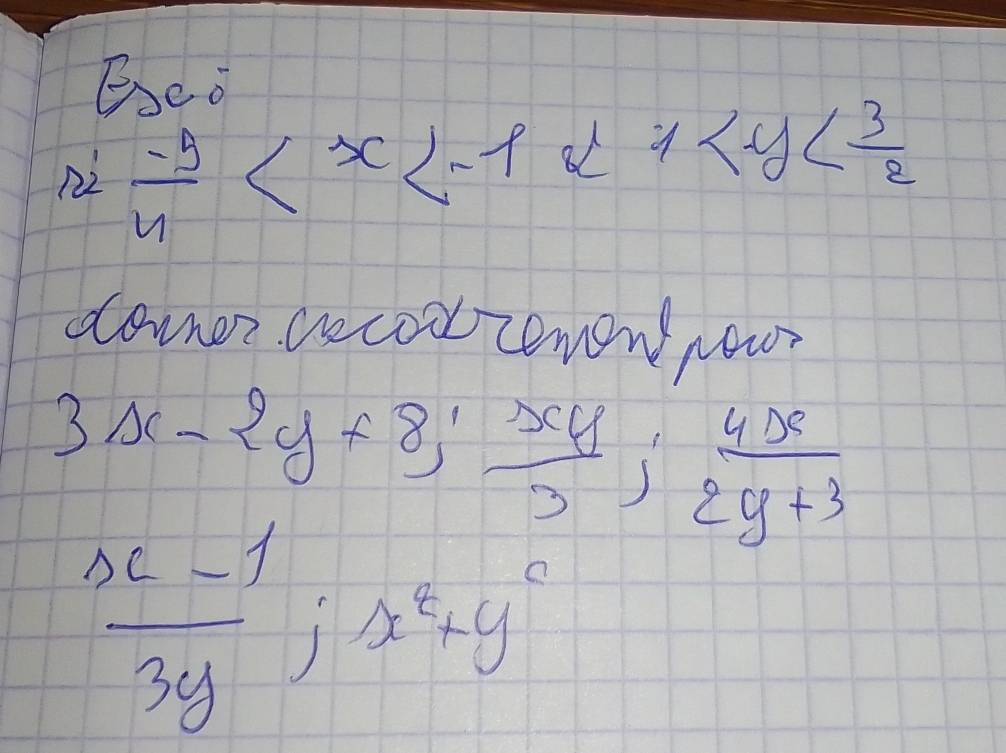 Exo :
si -9/4 < x < -1 et 1 < y < 3/2
donner encadrement pour
3x - 2y + 8 ; xy/3 ; 4x/(2y+3)
(x-1)/3y ; x² + y²